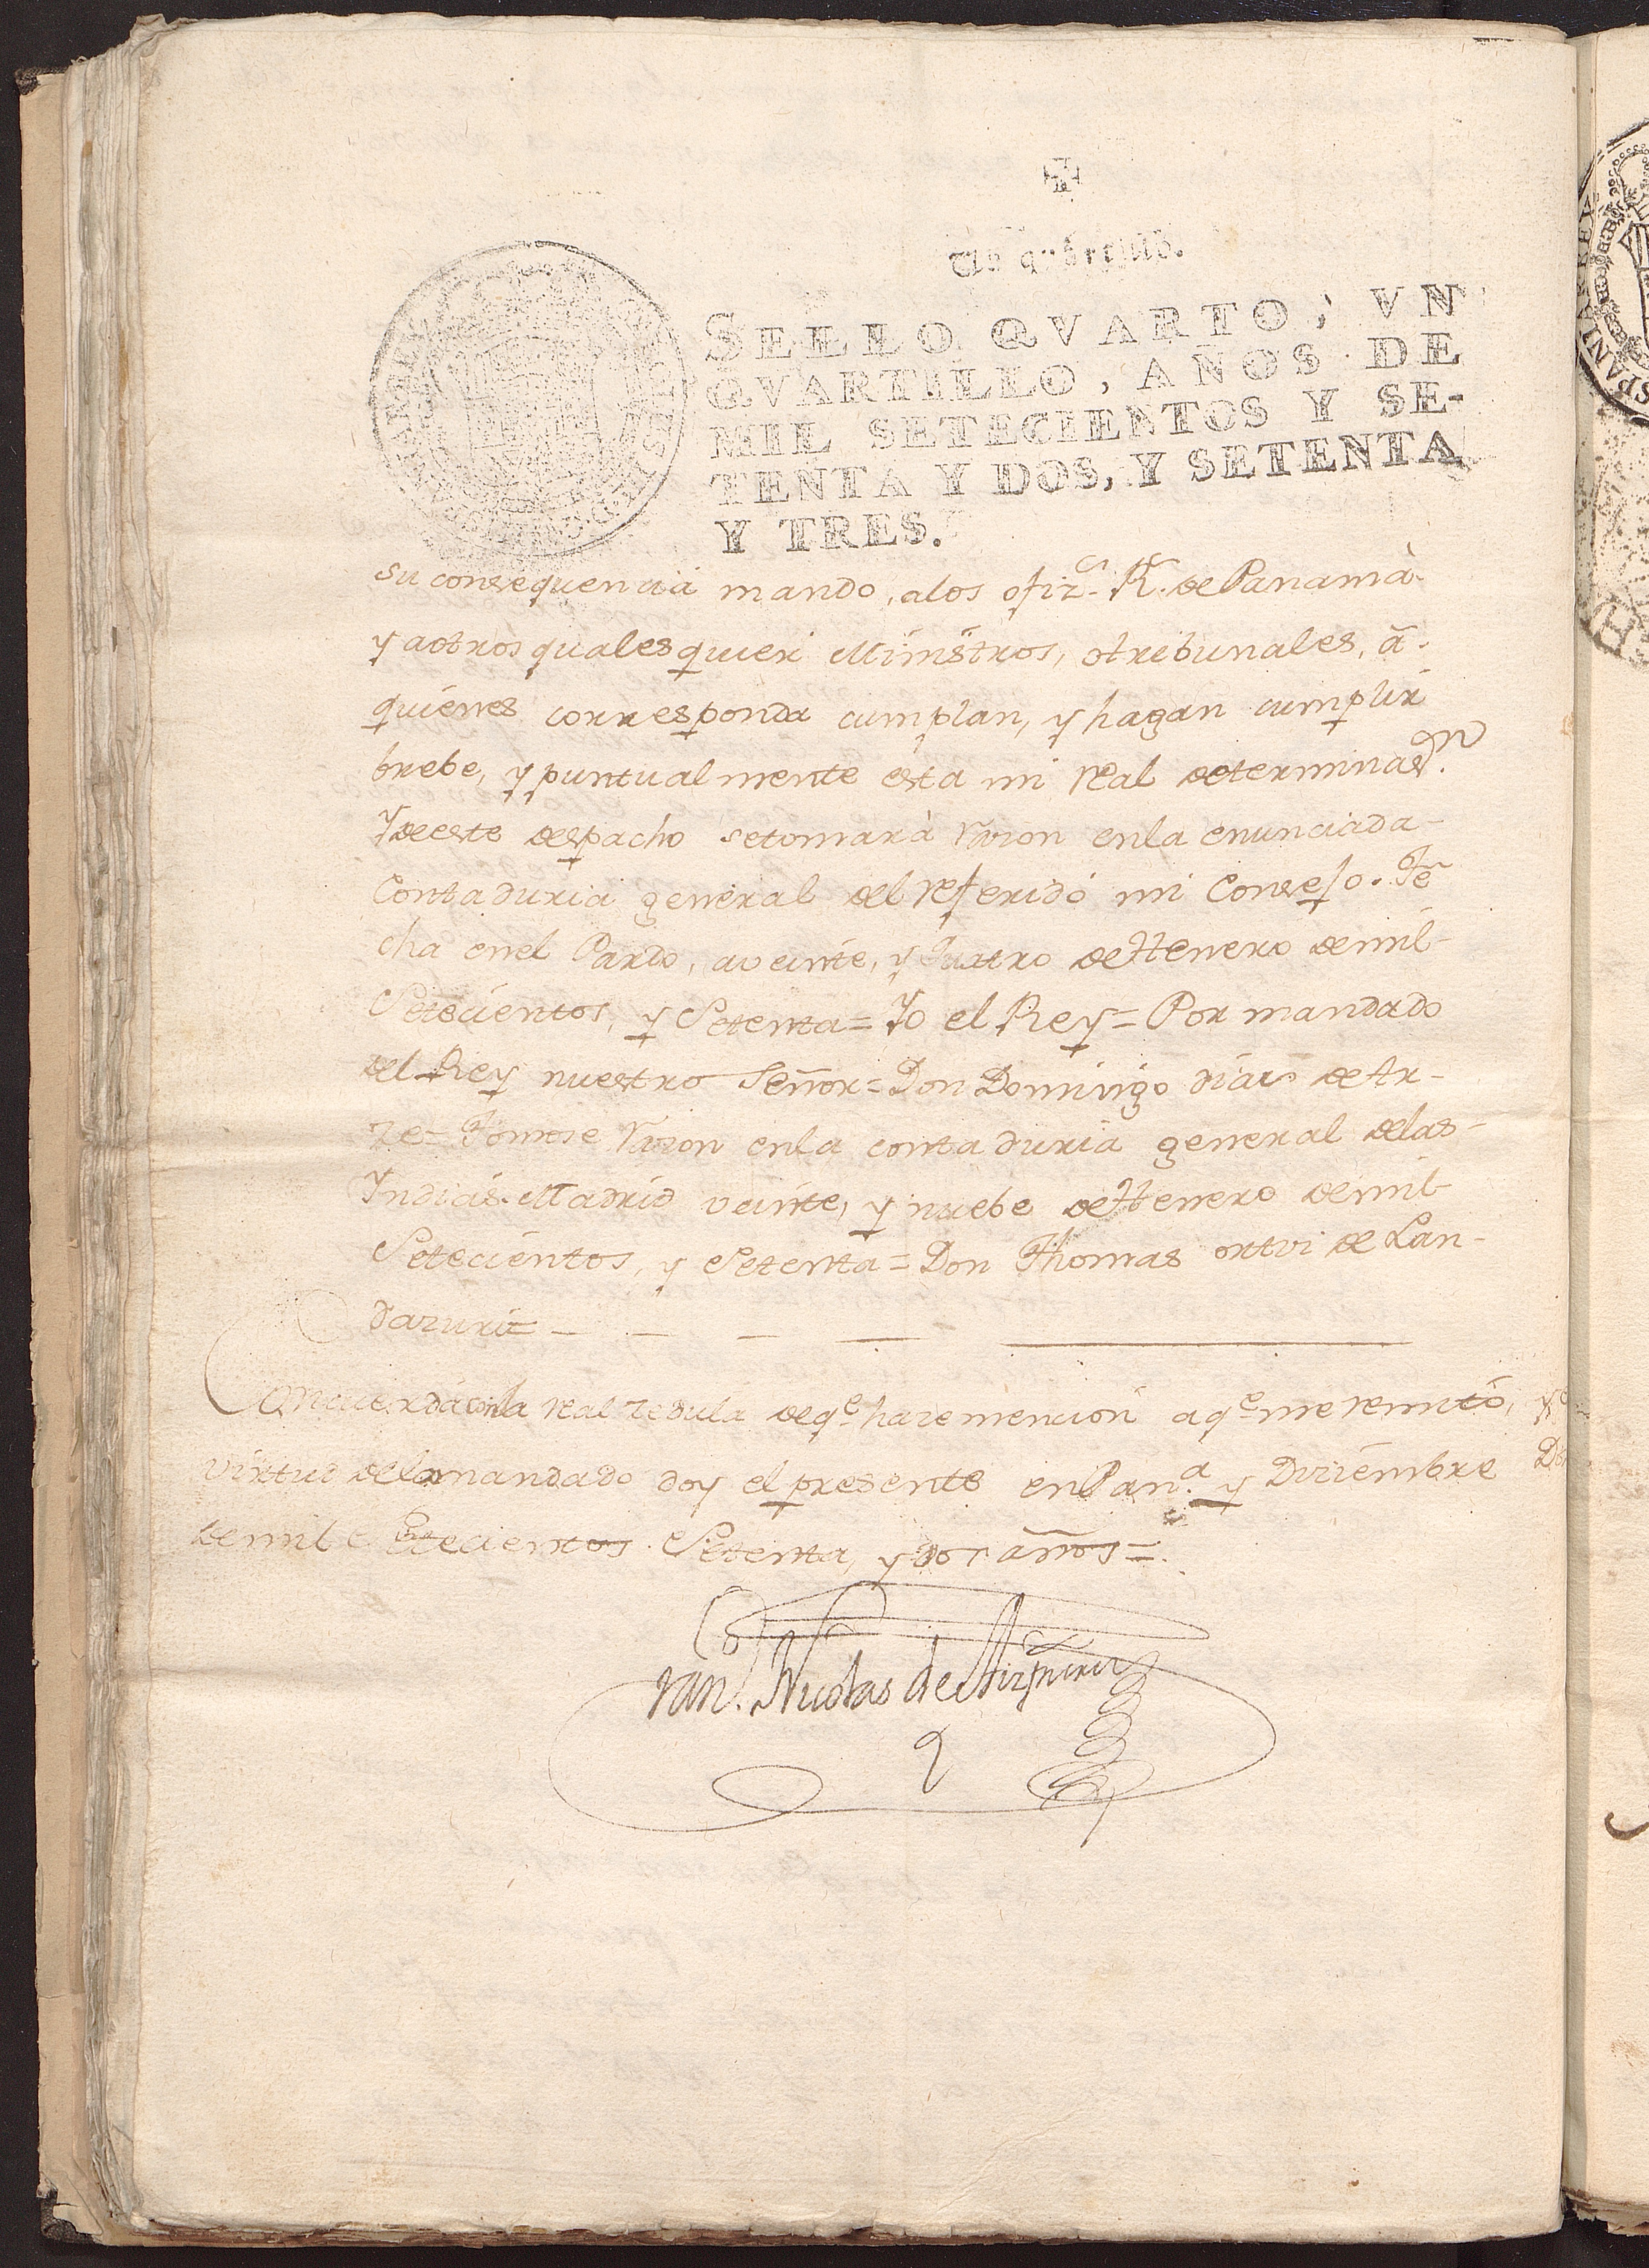 Un quartillo.
SELLO QVARTO, VN
QVARTILLO, AÑOS DE
MIL SETECIENTOS Y SE-
TENTA Y DOS, Y SETENTA
Y TRES.
su consequencia mando, alos ofiz.s R.s de Panamà
y aotros qualesquier Ministros, otribunales, â
quienes corresponda cumplan, y hagan cumplir
brebe, y puntualmente esta mi real determinaz.on
Y deeste despacho setomarà razon enla enunciada
Contaduria general del referido mi Consejo. Fe
cha enel Pardo, aveinte, y quatro de Henero demil
Setecientos, y Setenta = Yo el Rey = Por mandado
del Rey nuestro Señor = Don Domingo diaz de Ar-
ze = Tomose razon enla contaduria general delas
Yndias. Madrid veinte, y nuebe de Henero demil
Setecientos, y Setenta = Don Thomas ortiz de Lan-
dazuri =
Concuerda conla real zedula deq.e haze mencion aq.e me remito, y e
virtud delo mandado doy el presente en Pan.a y Diziembre
demil Setecientos Setenta, y dos años =
Man.l Nicolas de Aizpuru